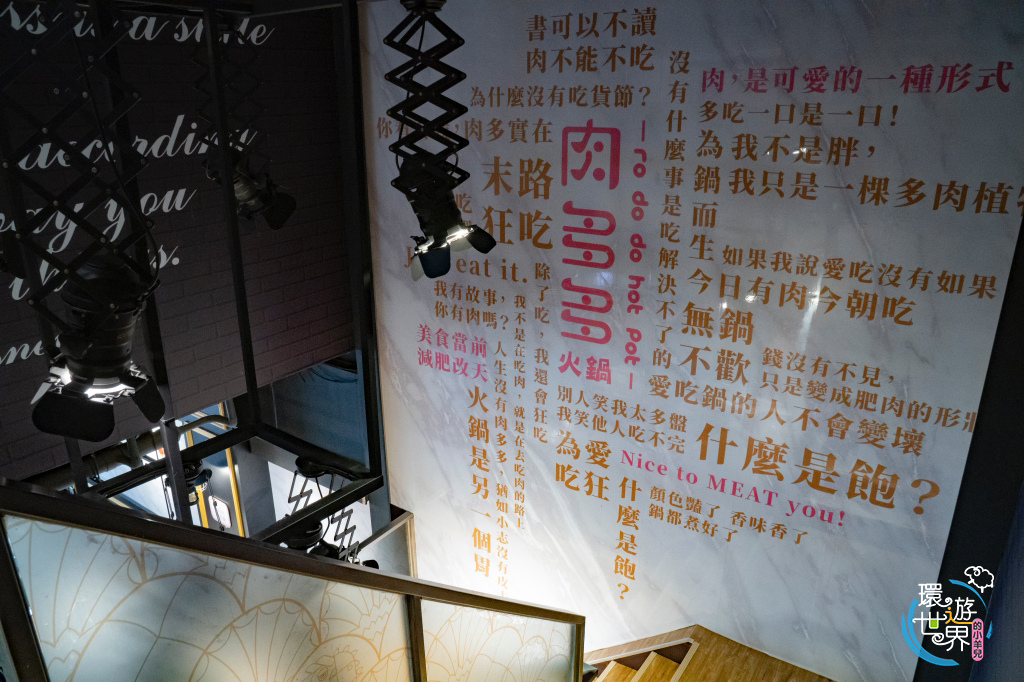 according
you
書可以不讀
肉不能不吃
為什麼沒有吃貨節？
肉多實在
末路
狂吃
eat it.
我有故事，
你有肉嗎？
美食當前
減肥改天
火鍋是另一個胃
人生沒有肉多多，猶如小志沒有皮
我不是在吃肉，就是在去吃肉的路上
除了吃，我還會狂吃
肉多多
火鍋
ro do do hot pot
別人笑我太多盤
我笑他人吃不完
為愛
吃狂
Nice to MEAT you!
什麼是飽？
顏色豔了 香味香了
鍋都煮好了
沒有什麼事是吃解決不了的
肉，是可愛的一種形式
多吃一口是一口！
為鍋而生
我不是胖，
我只是一棵多肉植
如果我說愛吃沒有如果
今日有肉今朝吃
無鍋
不歡
錢沒有不見，
只是變成肥肉的形
愛吃鍋的人不會變壞
什麼是飽？
環遊世界
的小羊兒